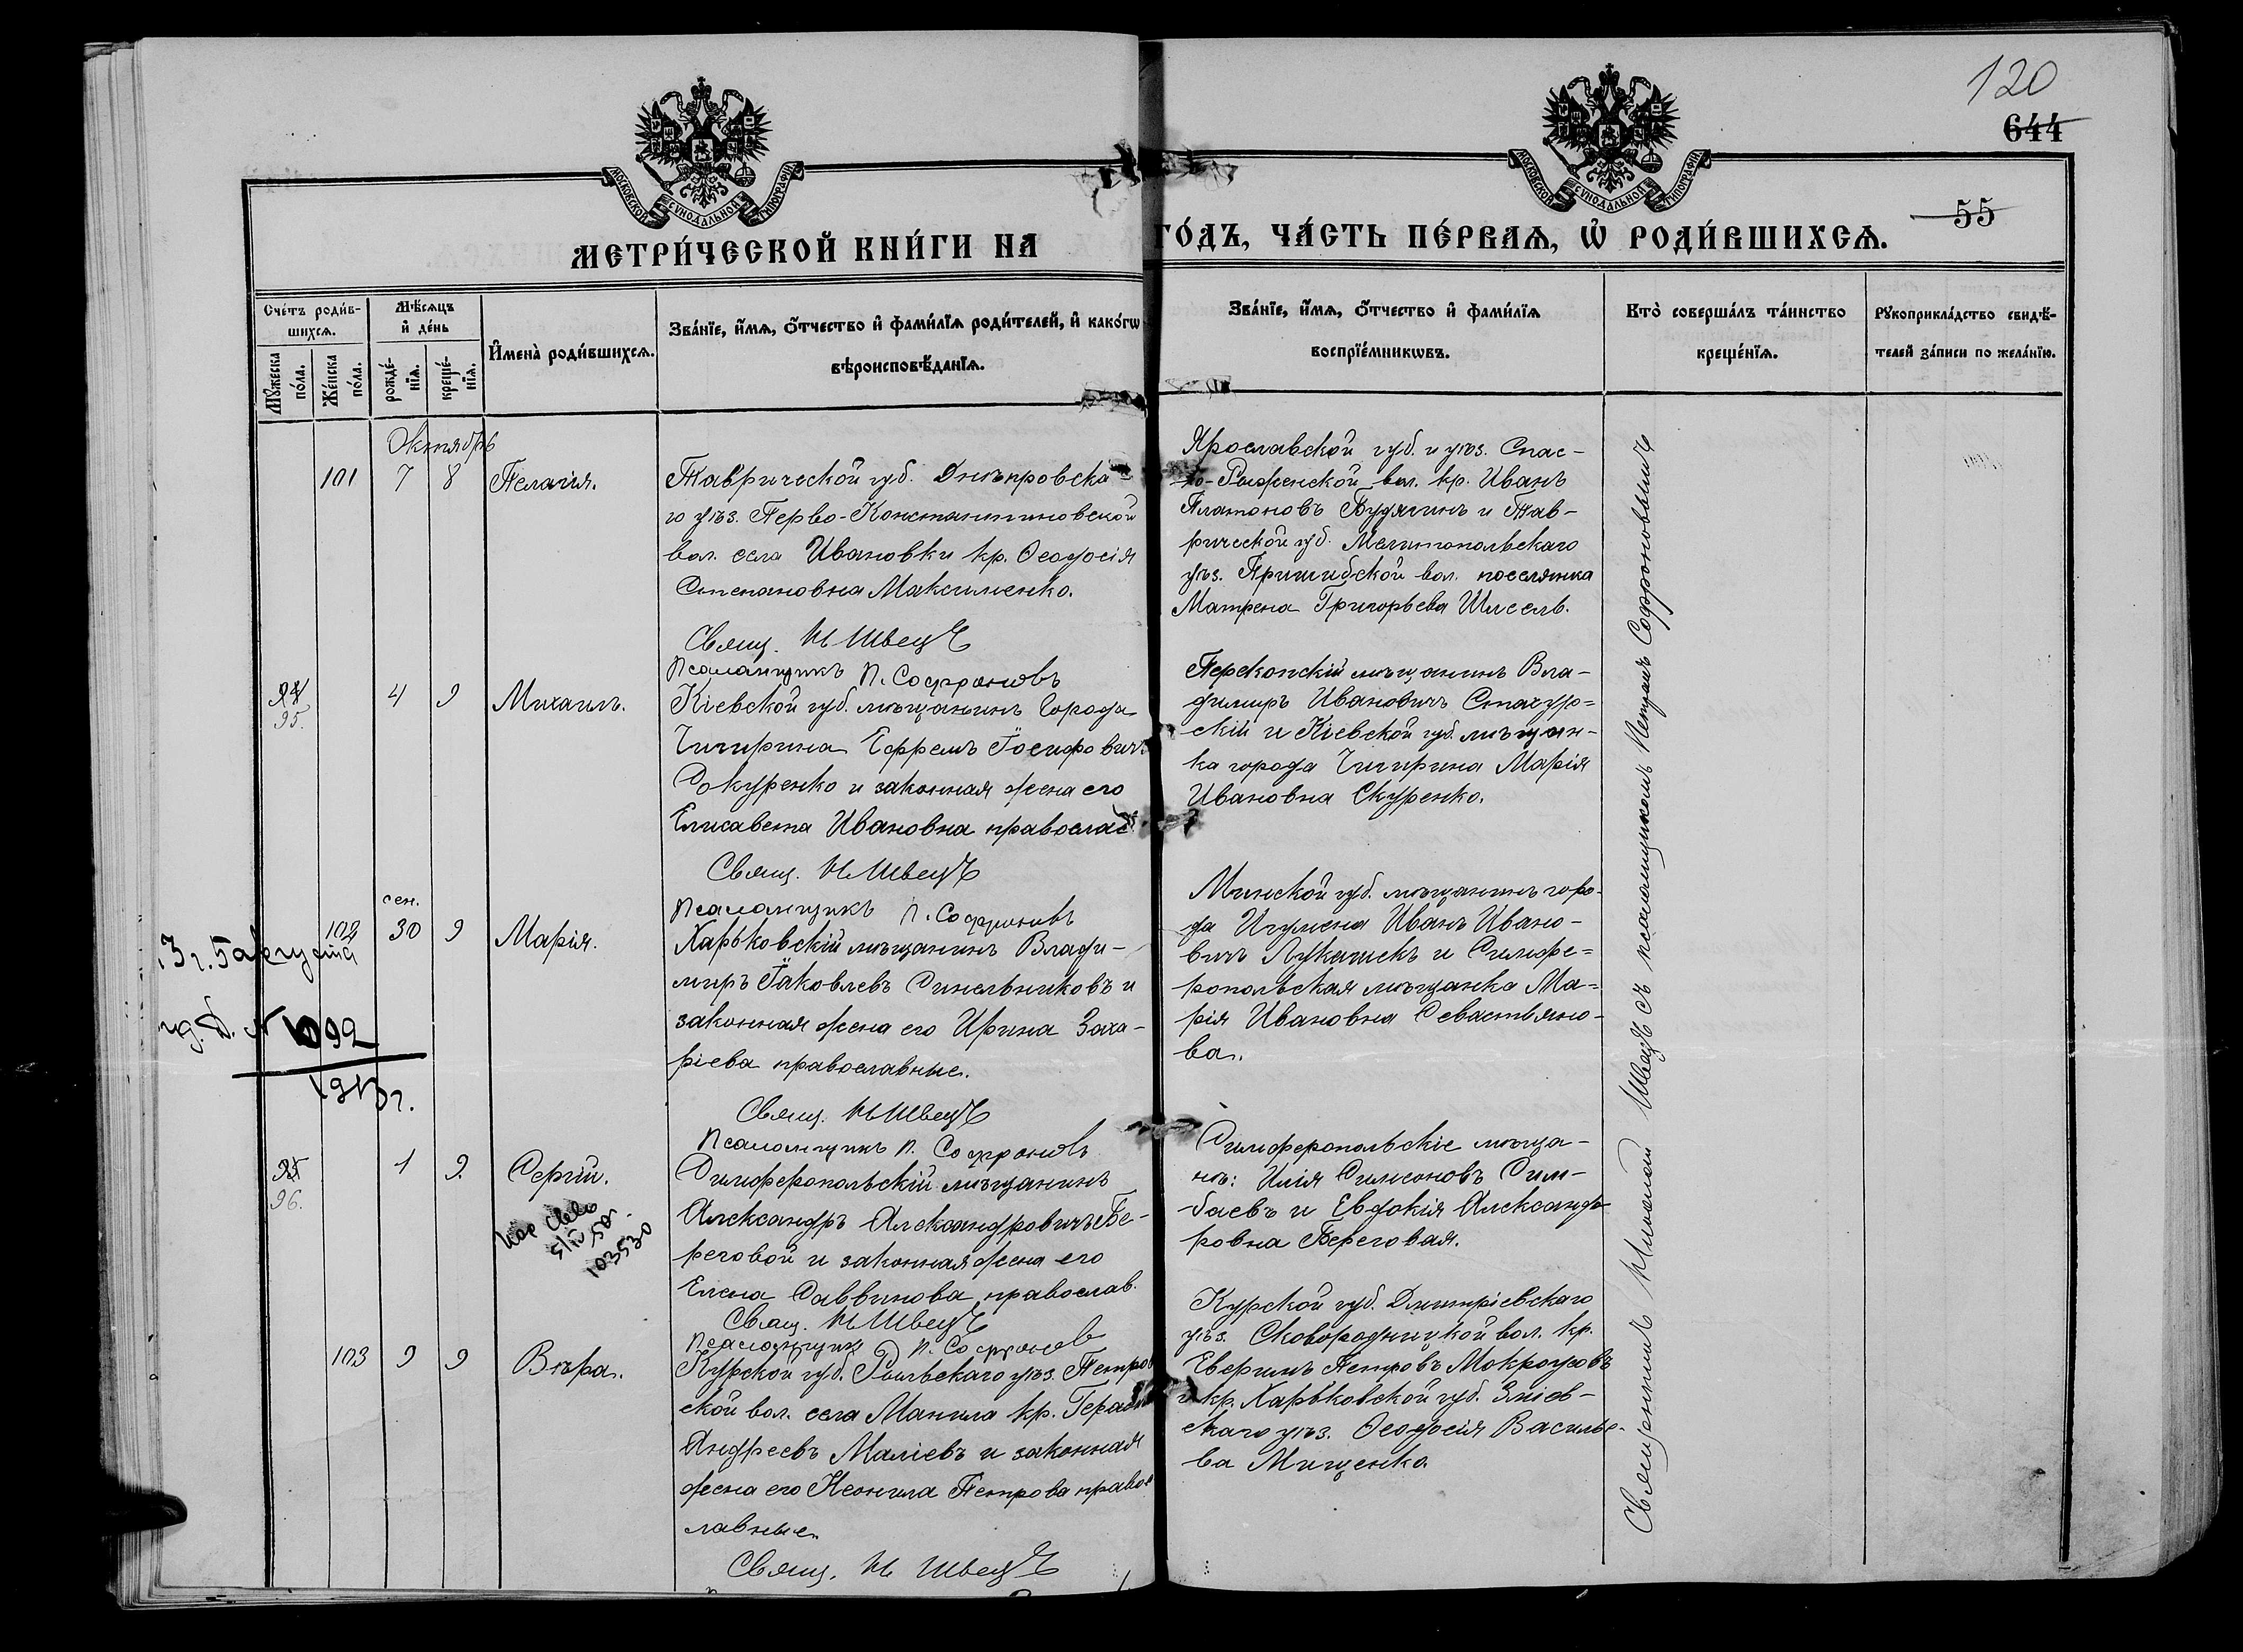 120
644
55
МОСКОВСКОЙ СУНОДАЛЬНОЙ ТИПОГРАФІИ
МОСКОВСКОЙ СУНОДАЛЬНОЙ ТИПОГРАФІИ
МЕТРИ́ЧЕСКОЙ КНИ́ГИ НА
ГО́ДЪ, ЧА́СТЬ ПЕ́РВАѦ, Ѡ҆ РОДИ́ВШИХСѦ.
Сче́тъ роди́в-
шихсѧ.
Мꙋ́жеска
по́ла.
Же́нска
по́ла.
Мѣ́сѧцъ
и҆ де́нь
рожде́-
нїѧ.
креще́-
нїѧ.
И҆мена̀ роди́вшихсѧ.
Зва́нїе, и҆́мѧ, ѻ҆́тчество и҆ фами́лїѧ роди́телей, и҆ како́гѡ
вѣроисповѣ́данїѧ.
Зва́нїе, и҆́мѧ, ѻ҆́тчество и҆ фами́лїѧ
воспрїе́мникѡвъ.
Кто̀ соверша́лъ та́инство
креще́нїѧ.
Рꙋкоприкла́дство свидѣ́-
телей за́писи по жела́нїю.
Октябрь
101 7 8 Пелагія.
Таврической губ. Днѣпровска-
го уѣз. Перво-Константиновской
вол. села Ивановки кр. Ѳеодосія
Степановна Максименко.
Свящ. Н Швецъ
Псаломщикъ П. Софроновъ
Ярославской губ. и уѣз. Спас-
вол. кр. Иванъ
Платоновъ Будягинъ и Тав-
рической губ. Мелитопольскаго
уѣз. Пришибской вол. поселянка
Матрена Григорьева Шлеель.
94
95. 4 9 Михаилъ.
Кіевской губ. мѣщанинъ города
Чигирина Ефремъ Іосифовичъ
Скуренко и законная жена его
Елисавета Ивановна православ.
Свящ. Н Швецъ
Псаломщикъ П. Софроновъ
Перекопскій мѣщанинъ Вла-
димиръ Ивановичъ Стахур=
скій и Кіевской губ. мѣщан-
ка города Чигирина Марія
Ивановна Скуренко.
сен.
102 30 9 Марія.
Харьковскій мѣщанинъ Влади-
миръ Іаковлевъ Синельниковъ и
законная жена его Ирина Заха-
ріева православные.
Свящ. Н Швецъ
Псаломщикъ П. Софроновъ
Минской губ. мѣщанинъ горо-
да Игумена Иванъ Ивано-
вичъ Лукашекъ и Симфе=
ропольская мѣщанка Ма=
рія Ивановна Севастьяно-
ва.
5 августа
1913 г.
95
96. 1 9. Сергій.
5/IV 50.
103530
Симферопольскій мѣщанинъ
Александръ Александровичъ Бе-
реговой и законная жена его
Елена Саввинова, православ.
Свящ. Н Швецъ
Псаломщикъ П. Софроновъ
Симферопольскіе мѣща-
нѣ: Илія Симеоновъ Сим-
баевъ и Евдокія Александ-
ровна Береговая.
103 9 9 Вѣра.
Курской губ. Рыльскаго уѣз. Петров
ской вол. села Манила кр. Герасим
Андреевъ Маліевъ и законная
жена его Неонила Петрова правос
лавные.
Свящ. Н Швецъ
Курской губ. Дмитріевскаго
уѣз. Сковороднинской вол. кр.
Петровъ Мокроусовъ
и кр. Харьковской губ. Зміев-
скаго уѣз. Ѳеодосія Василье-
ва Мищенко.
Священникъ Николай Швецъ съ псаломщикомъ Петромъ Софроновымъ